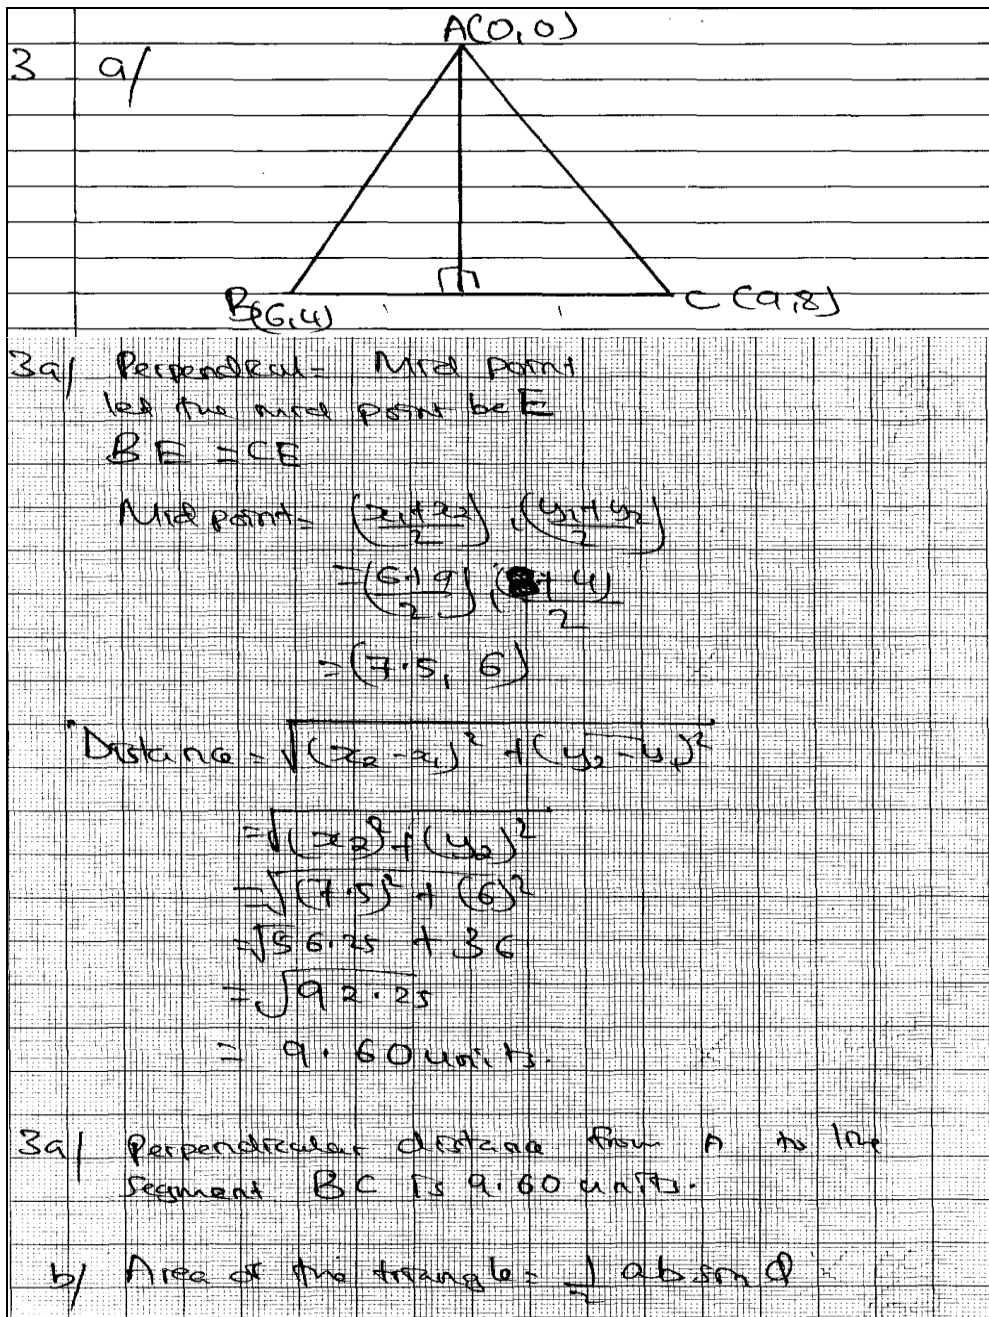 A(0,0)
3 a/
B(6,4) C(9,8)
3a/ Perpendicul= Mid point
let the mid point be E
BE = CE
Mid point= (x₁+x₂/2), (y₁+y₂/2)
=(6+9/2), (8+4)/2
=(7.5, 6)
Distance = √(x₂-x₁)² + (y₂-y₁)²
=√(x₂)²+(y₂)²
=√(7.5)² + (6)²
=√56.25 + 36
=√92.25
= 9.60 units.
3a/ Perpendicular distance from A to line
segment BC is 9.60 units.
b/ Area of the triangle= 1/2 ab sin θ